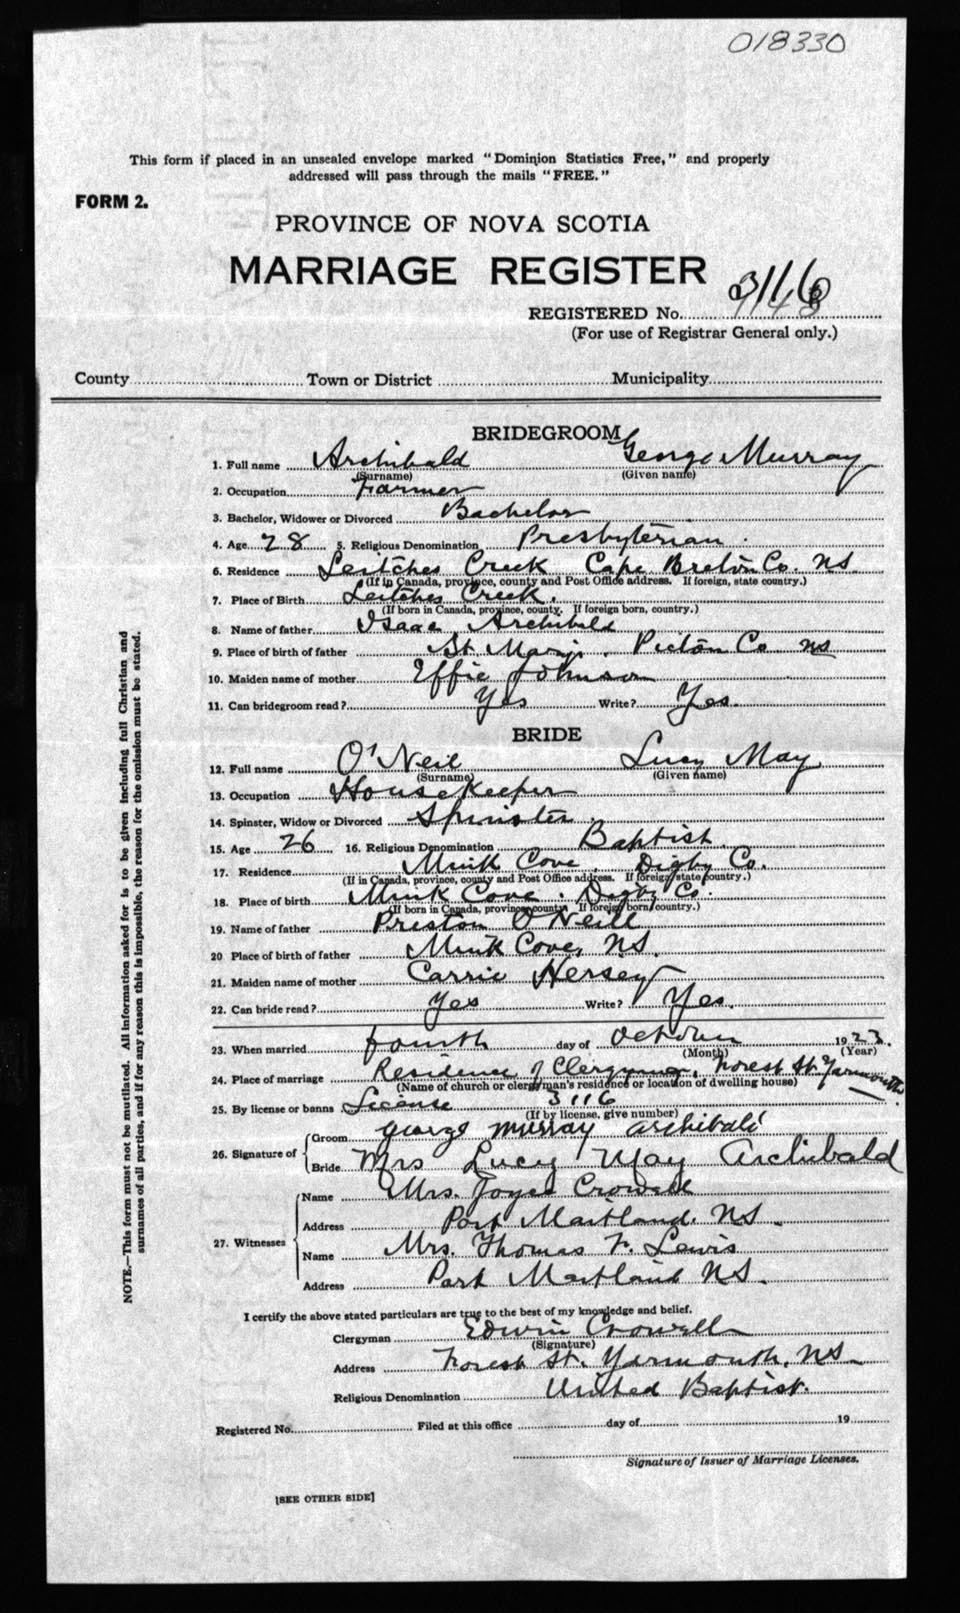 018330
This form if placed in an unsealed envelope marked "Dominion Statistics Free," and properly
addressed will pass through the mails "FREE."
FORM 2.
PROVINCE OF NOVA SCOTIA
MARRIAGE REGISTER
3116
REGISTERED No. 1148
(For use of Registrar General only.)
County Town or District Municipality
BRIDEGROOM
1. Full name Archibald George Murray
(Surname) (Given name)
2. Occupation Farmer
3. Bachelor, Widower or Divorced Bachelor
4. Age 28 5. Religious Denomination Presbyterian
6. Residence Leitches Creek Cape Breton Co. NS
(If in Canada, province, county and Post Office address. If foreign, state country.)
7. Place of Birth Leitches Creek.
(If born in Canada, province, county. If foreign born, country.)
8. Name of father Isaac Archibald
9. Place of birth of father St. Marys. Pictou Co NS
10. Maiden name of mother Effie Johnson
11. Can bridegroom read? Yes Write? Yes.
BRIDE
12. Full name O'Neil Lucy May
(Surname) (Given name)
13. Occupation Housekeeper
14. Spinster, Widow or Divorced Spinster
15. Age 26 16. Religious Denomination Baptist
17. Residence Mink Cove Digby Co.
(If in Canada, province, county and Post Office address. If foreign, state country.)
18. Place of birth Mink Cove. Digby Co.
(If born in Canada, province, county. If foreign born, country.)
19. Name of father Preston O'Neill
20 Place of birth of father Mink Cove, NS.
21. Maiden name of mother Carrie Hersey
22. Can bride read? Yes Write? Yes.
23. When married fourth day of October 1923.
(Month) (Year)
24. Place of marriage Residence of Clergyman, Forest St. Yarmouth
(Name of church or clergyman's residence or location of dwelling house)
25. By license or banns License 3116
(If by license, give number)
26. Signature of
Groom George Murray Archibald
Bride Mrs Lucy May Archibald
27. Witnesses
Name Mrs. Joyce Crowell
Address Port Maitland, NS.
Name Mrs. Thomas F. Lewis
Address Port Maitland NS.
I certify the above stated particulars are true to the best of my knowledge and belief.
Clergyman Edwin Crowell
(Signature)
Address Forest St. Yarmouth, NS
Religious Denomination United Baptist.
Registered No. Filed at this office day of 19
Signature of Issuer of Marriage Licenses.
[SEE OTHER SIDE]
NOTE.—This form must not be mutilated. All information asked for is to be given including full Christian and
surnames of all parties, and if for any reason this is impossible, the reason for the omission must be stated.